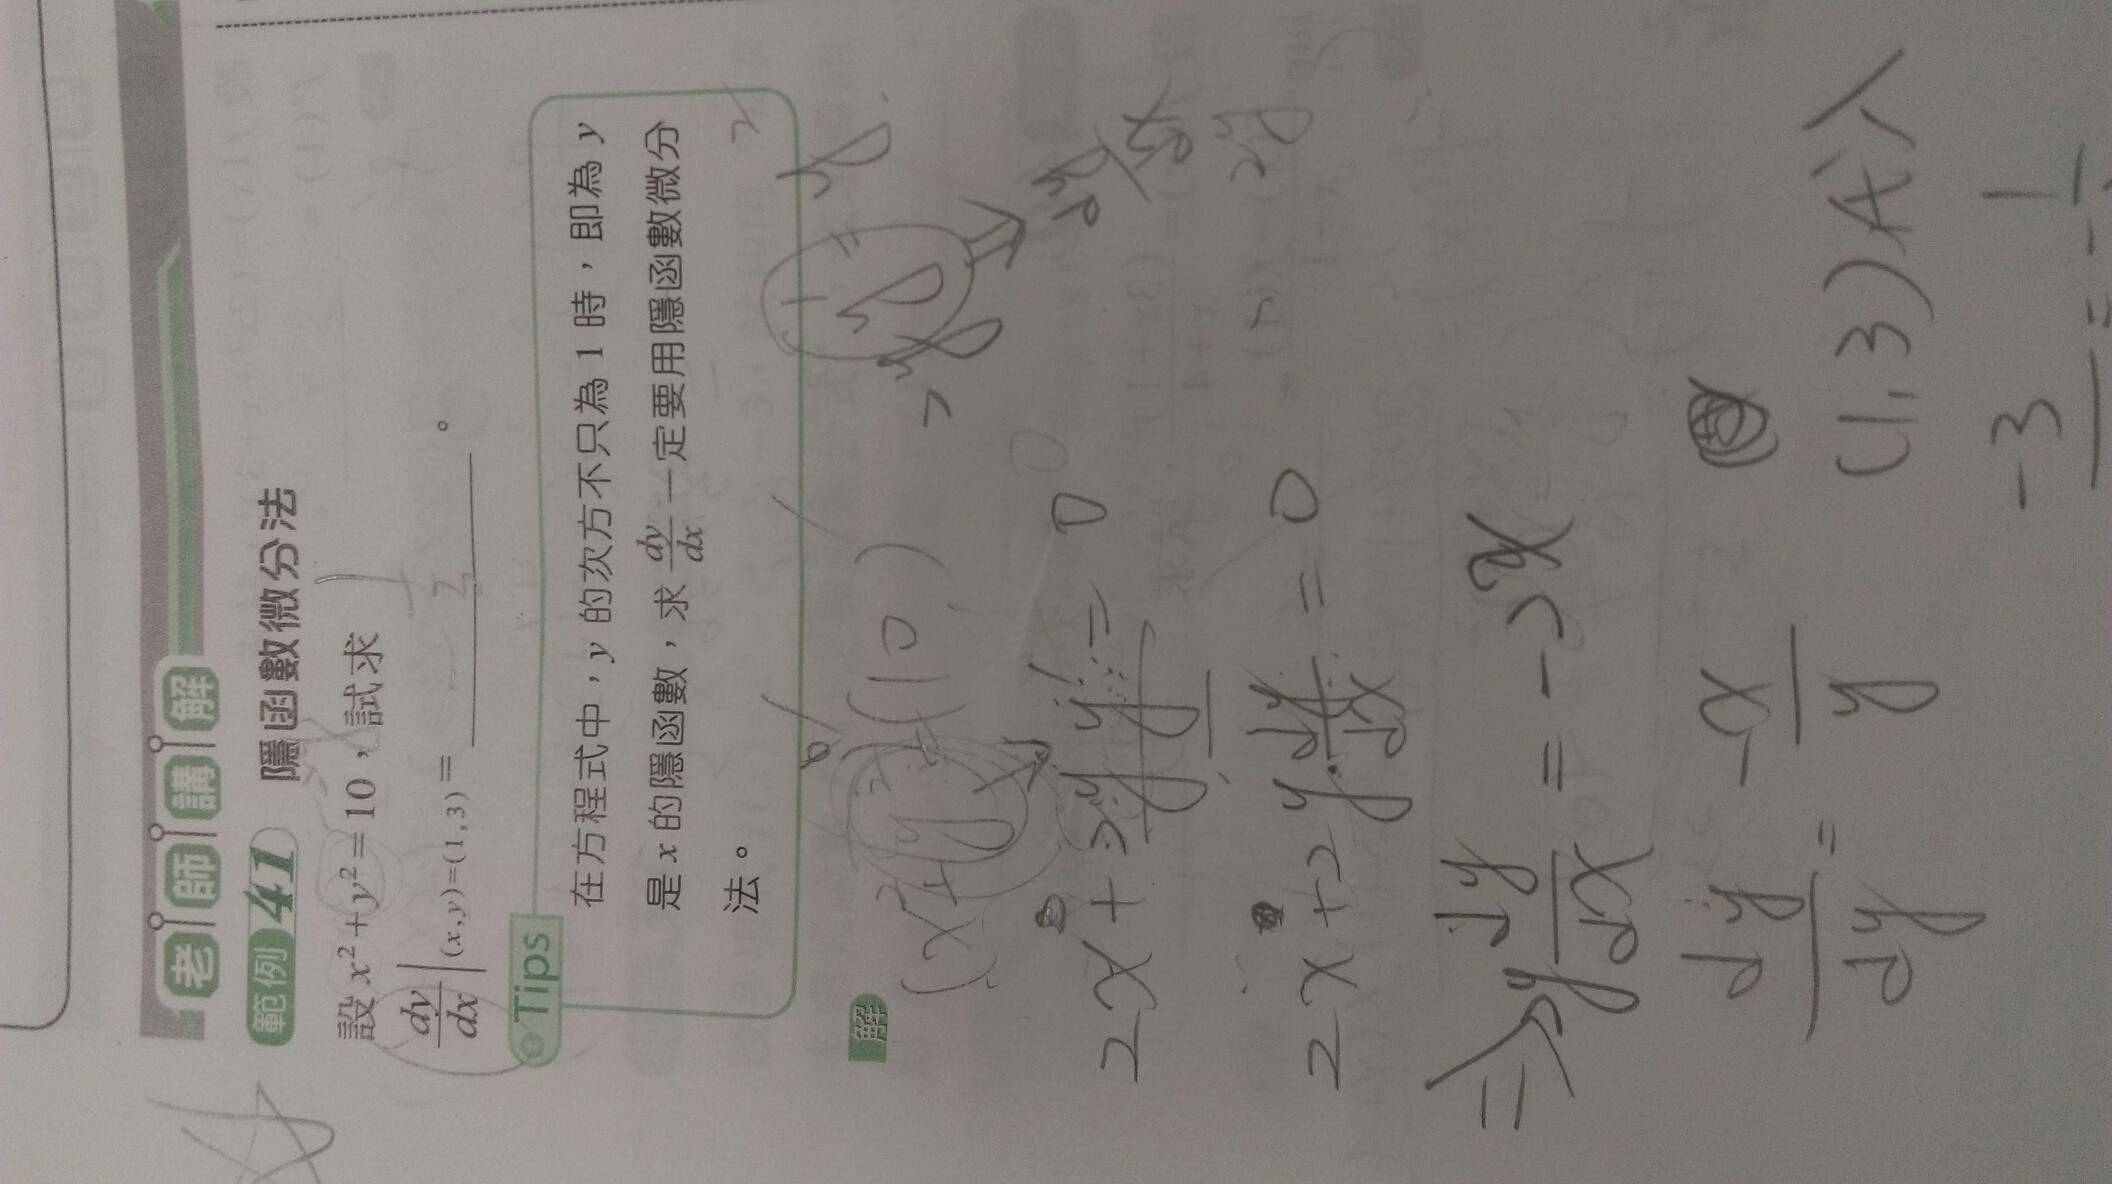 老師講解
範例 41 隱函數微分法
設 x² + y² = 10,試求
dy/dx |(x,y)=(1,3) = ______。
Tips
在方程式中,y 的次方不只為 1 時,即為 y
是 x 的隱函數,求 dy/dx 一定要用隱函數微分
法。
解
(x² + y²)' = (10)'
2x + 2y y' = 0
2x + 2y · dy/dx = 0
⇒ 2y dy/dx = -2x
dy/dy = -x/y
(1,3)代入